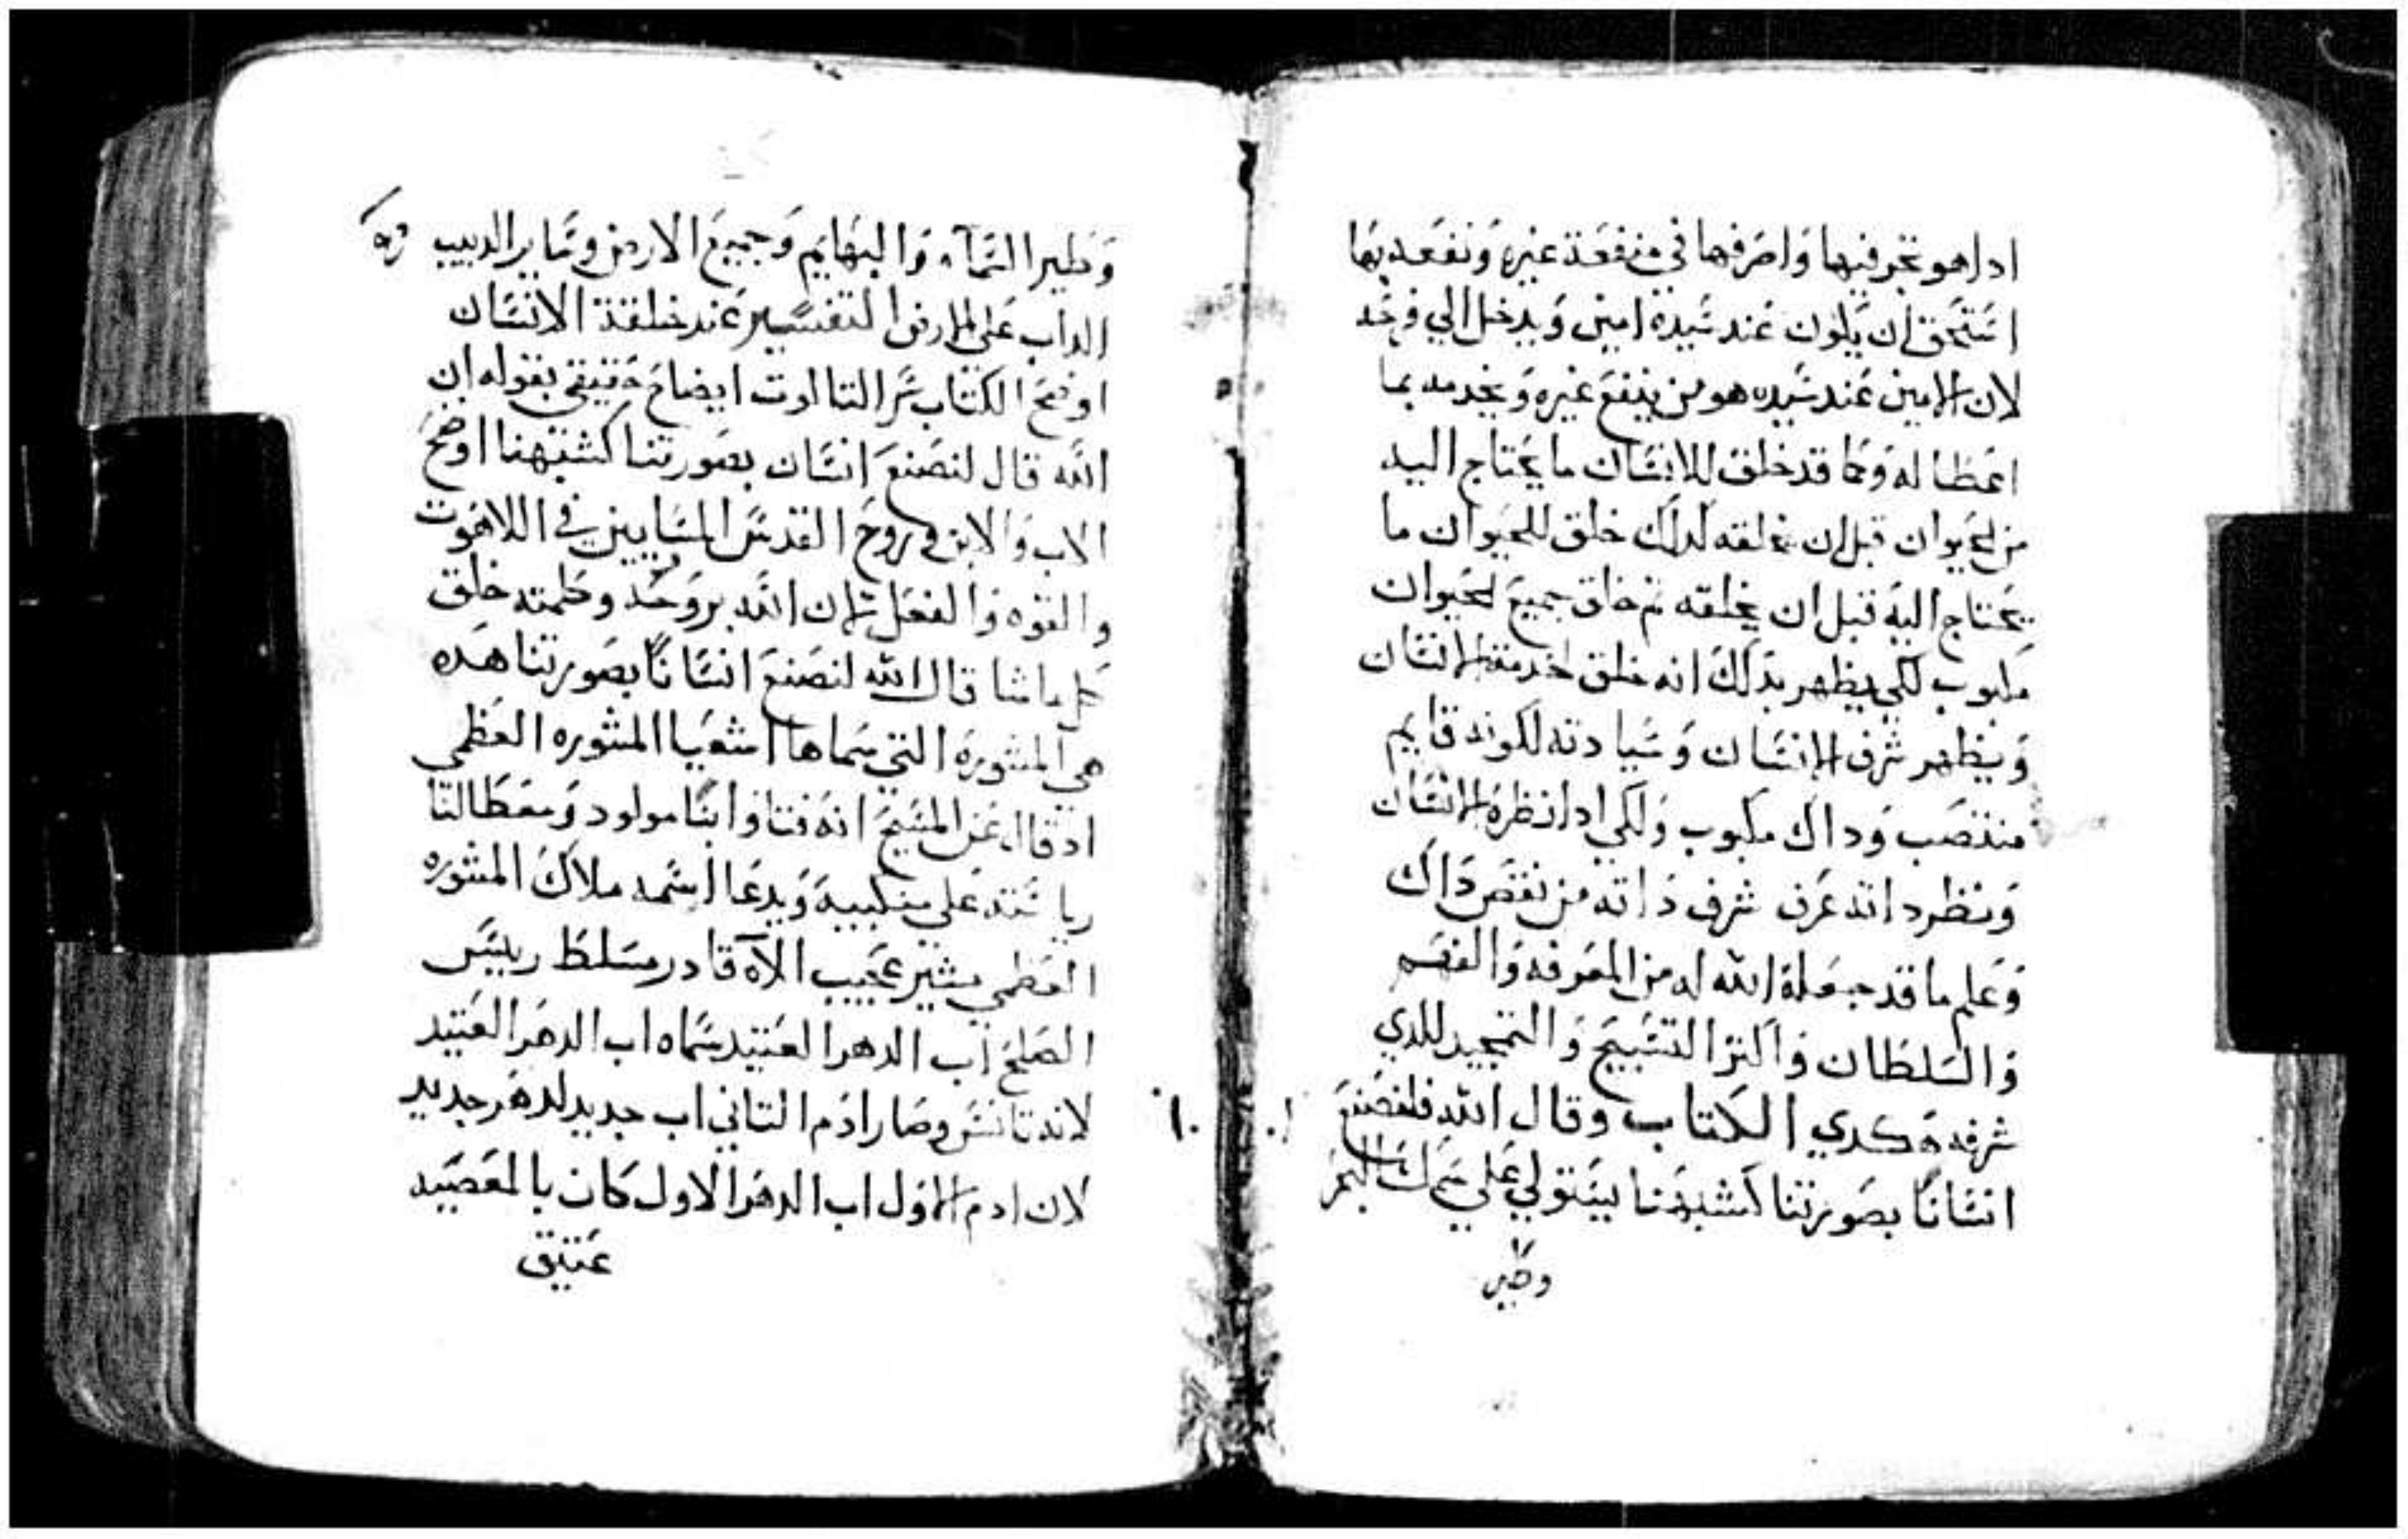 ادا هو تجر فيها واصرفها في منفعة غيره ونفعه بها
استحق ان يكون عند سيده امين ويدخل الي فرحه
لان الامين عند سيده هو من ينفع غيره ويخدمه بما
اعطا له وكما قد خلق للانسان ما يحتاج اليه
من الحيوان قبل ان يخلقه لدلك خلق للحيوان ما
يحتاج اليه قبل ان يخلقه تم خلق جميع الحيوان
مكبوب لكي يظهر بدلك انه خلق لخدمة الانسان
ويظهر شرف الانسان وسيادته لكونه قايم
منتصب وداك مكبوب ولكي ادا نظرة الانسان
ونظر داته عرف شرف داته من نقص داك
وعلم ما قد جعلة الله له من المعرفه والفهم
والسلطان واكتر التسبيح والتمجيد للدي
شرفه هكدي الكتاب وقال الله فلنصنع
انسانا بصورتنا كشبهنا يستولي علي سمك البحر
وطير
وطير السماء والبهايم وجميع الارض وساير الدبيب
الداب علي الارض التفسير عند خلقة الانسان
اوضح الكتاب سر التالوت ايضاح حقيقي بقوله ان
الله قال لنصنع انسان بصورتنا كشبهنا اوضح
الاب والابن وروح القدس المساويين في اللاهوت
والقوه والفعل لان الله بروحه وكلمته خلق
كل ماشا قال الله لنصنع انسانا بصورتنا هده
هي المشورة التي سماها اشعيا المشوره العظمي
اد قال عن المسيح انه فتا وابنا مولود ومعطا لنا
رياسته علي منكبيه ويدعا اسمه ملاك المشوره
العظمي مشير عجيب الآه قادر مسلط رييس
الصلح اب الدهر العتيد سماه اب الدهر العتيد
لانه تانس وصار ادم التاني اب جديد لدهر جديد
لان ادم الاول اب الدهر الاول كان بالمعصيه
عتيق